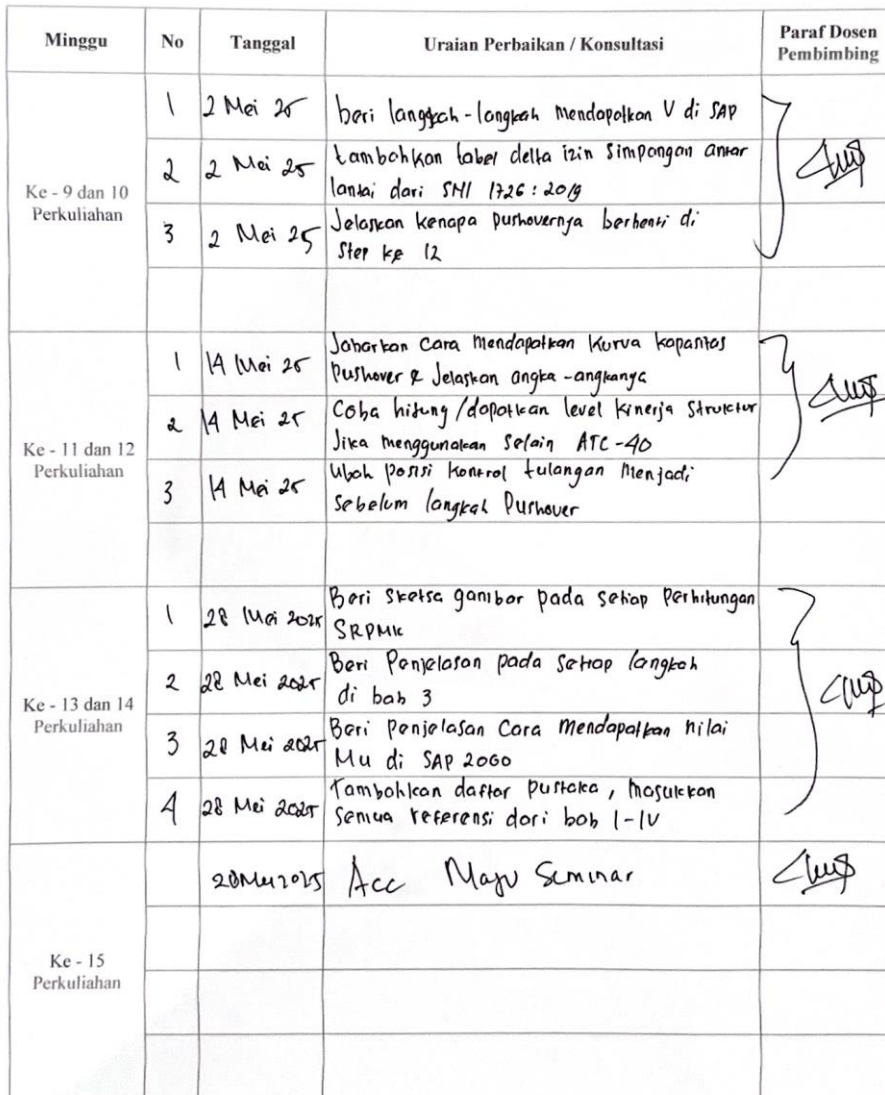 Minggu No Tanggal Uraian Perbaikan / Konsultasi Paraf Dosen Pembimbing
Ke - 9 dan 10 Perkuliahan
1 2 Mei 25 beri langkah-langkah mendapatkan V di SAP
2 2 Mei 25 tambahkan tabel delta izin simpangan antar
lantai dari SNI 1726:2019
3 2 Mei 25 Jelaskan kenapa pushovernya berhenti di
Step ke 12
Ke - 11 dan 12 Perkuliahan
1 14 Mei 25 Jabarkan Cara mendapatkan kurva kapasitas
Pushover & Jelaskan angka-angkanya
2 14 Mei 25 Coba hitung/dapatkan level kinerja Struktur
Jika menggunakan selain ATC-40
3 14 Mei 25 Ubah posisi kontrol tulangan menjadi
sebelum langkah Pushover
Ke - 13 dan 14 Perkuliahan
1 28 Mei 2025 Beri sketsa gambar pada setiap Perhitungan
SRPMK
2 28 Mei 2025 Beri Penjelasan pada setiap langkah
di bab 3
3 28 Mei 2025 Beri penjelasan Cara mendapatkan nilai
Mu di SAP 2000
4 28 Mei 2025 Tambahkan daftar pustaka, masukkan
semua referensi dari bab I-IV
Ke - 15 Perkuliahan
Acc Maju Seminar